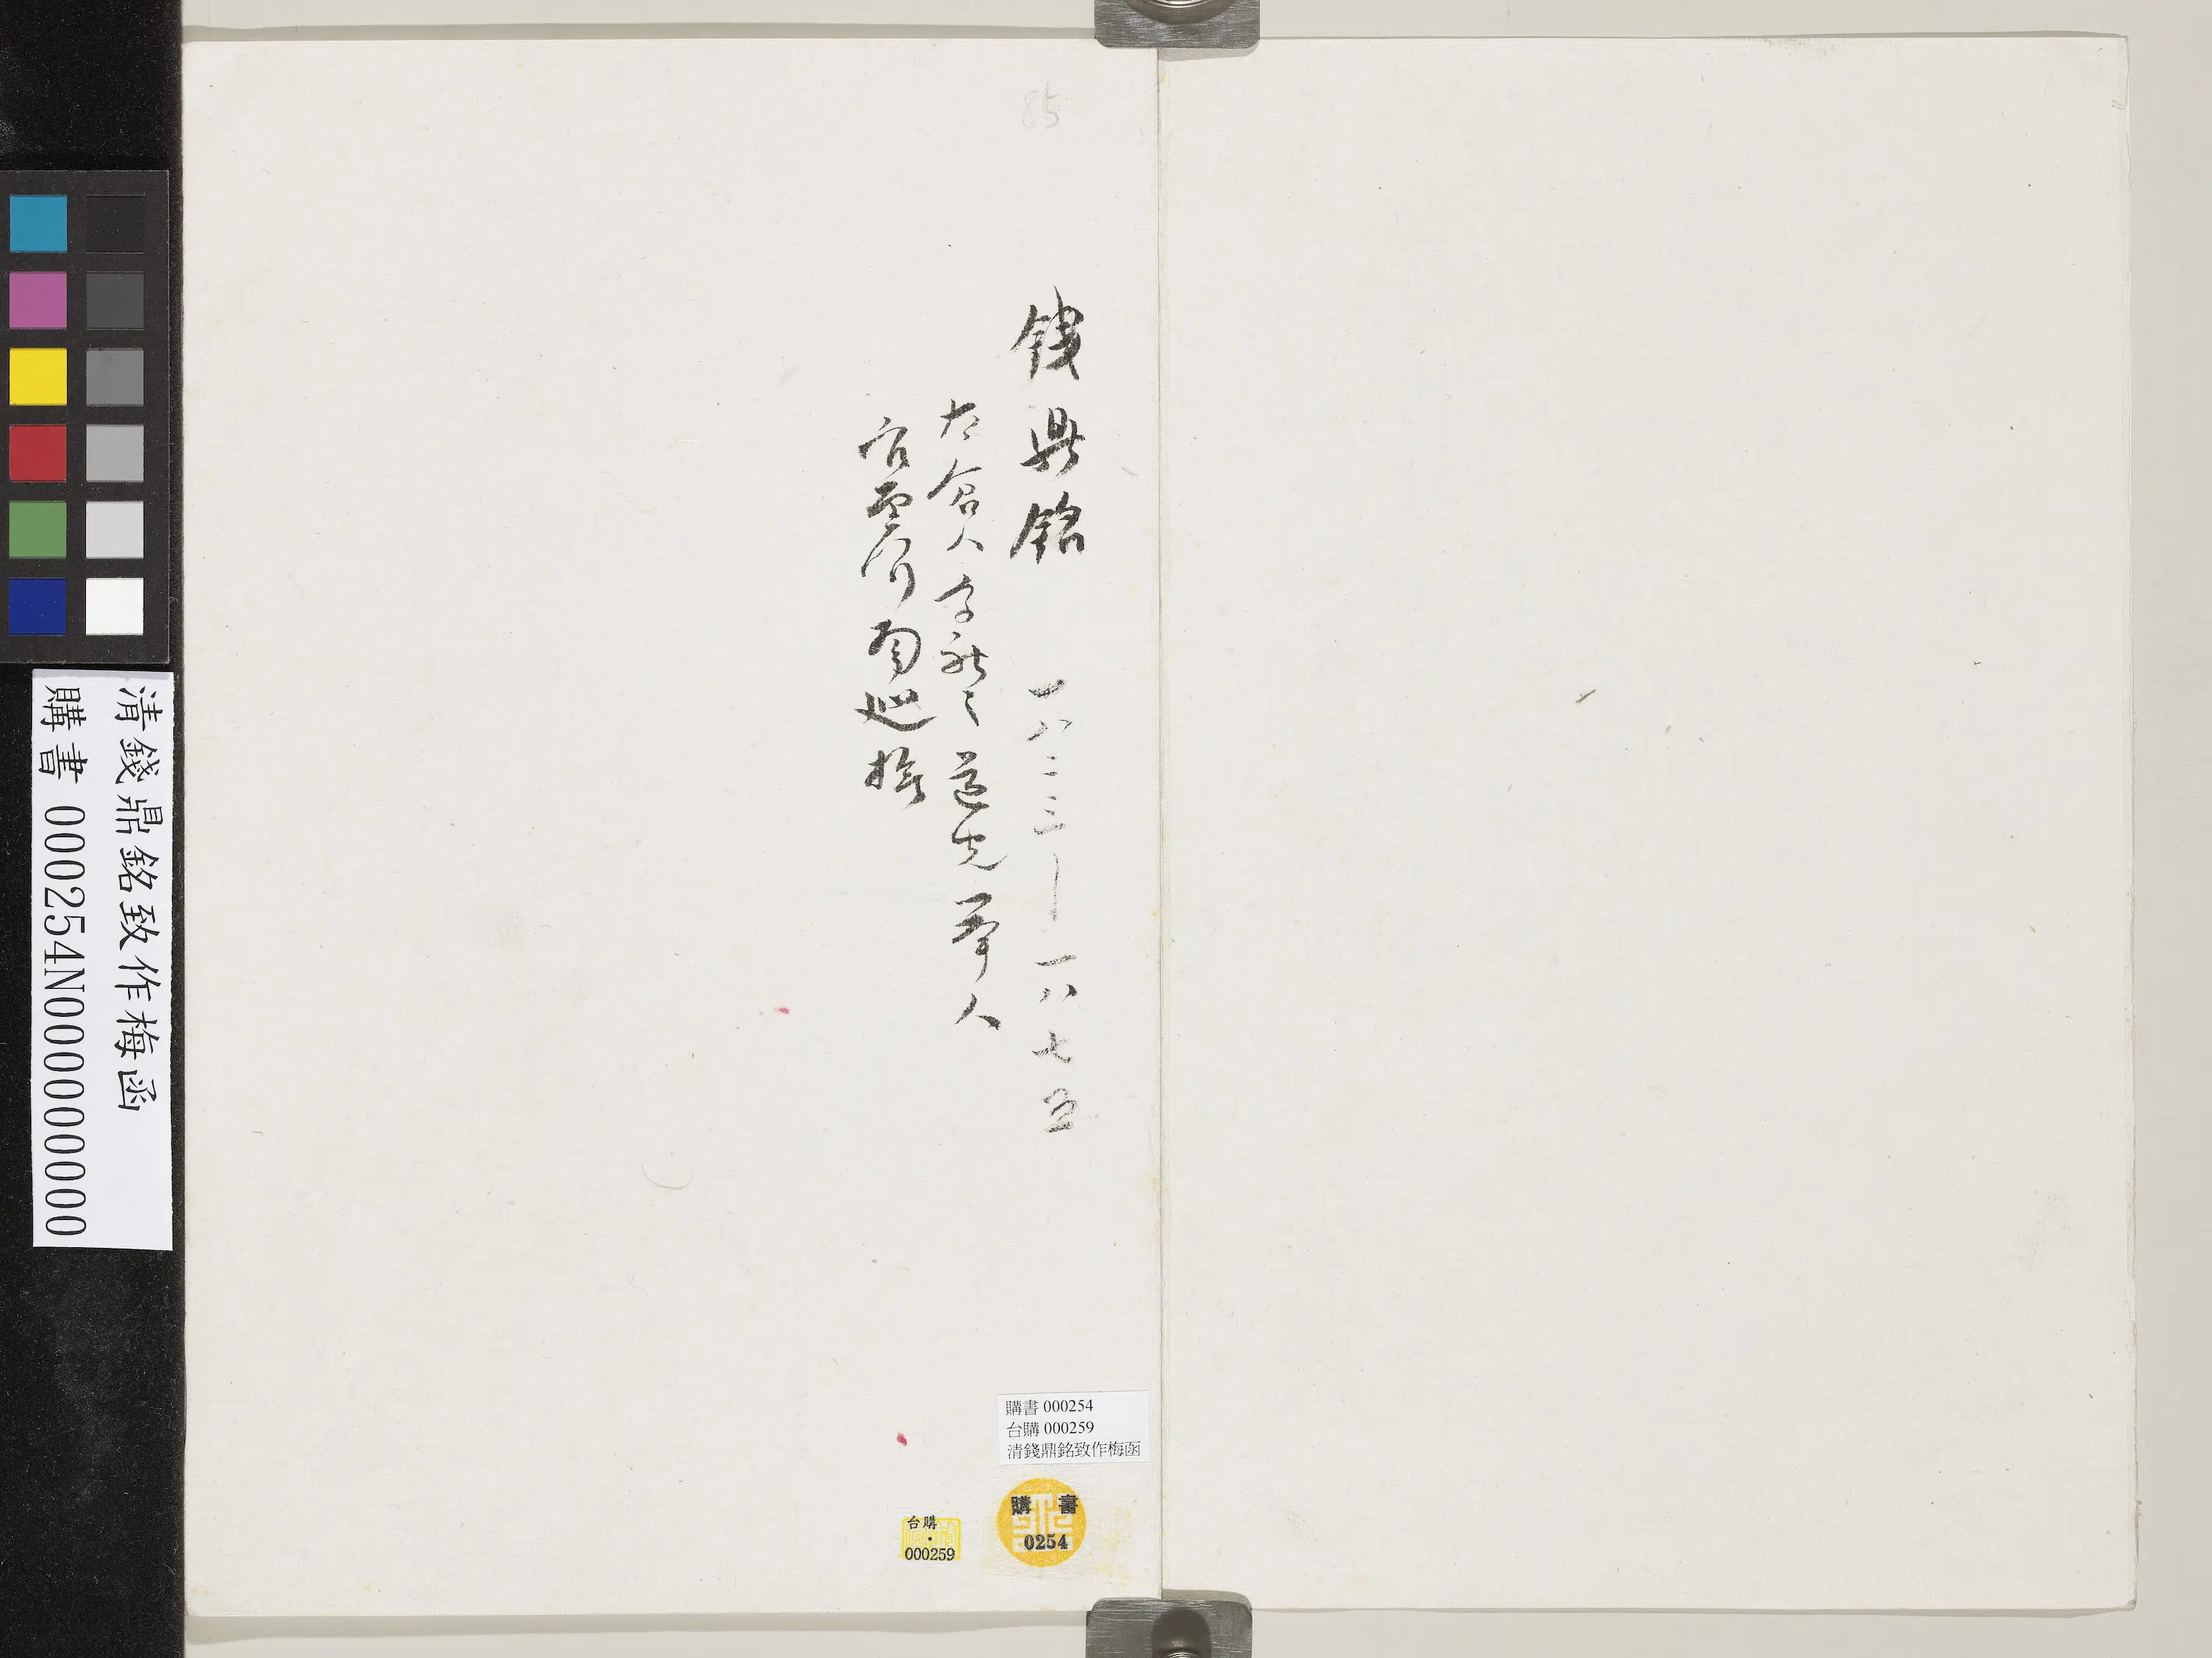 85
錢鼎銘 一八二三—一八七五
太倉人字新之道光舉人
官至河南巡撫
購書 000254
台購 000259
清錢鼎銘致作梅函
購書
0254
台購
000259
清錢鼎銘致作梅函
購書 000254N000000000